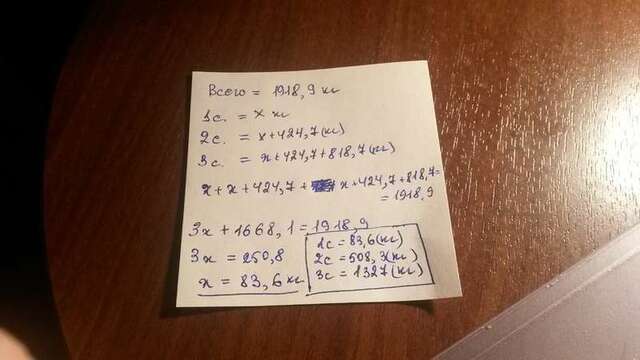 Всего = 1918,9 кг
1с. = x кг
2с. = x+424,7(кг)
3с. = x+424,7+818,7(кг)
x+x+424,7+x+424,7+818,7=
=1918,9
3x+1668,1=1918,9
3x = 250,8
x = 83,6 кг
1с=83,6(кг)
2с=508,3(кг)
3с=1327(кг)